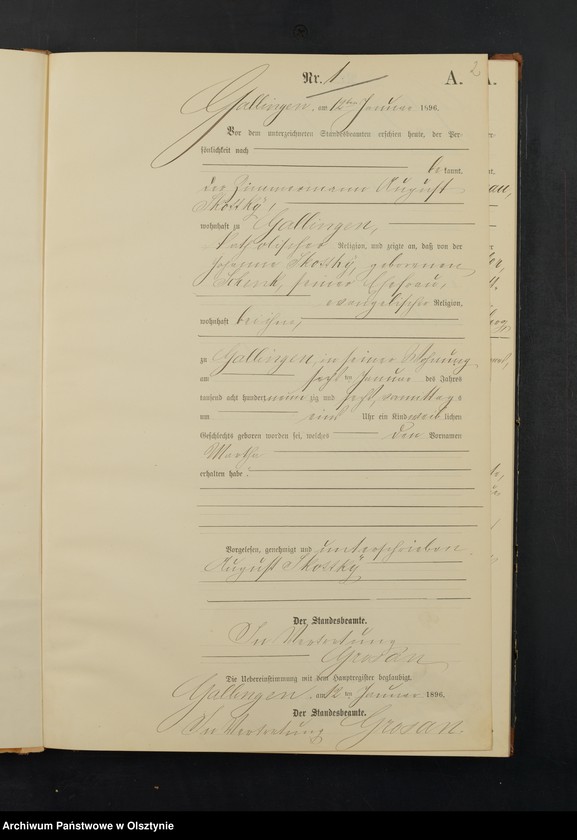 2
Nr. 1 A.
Gallingen, am 12ten Januar 1896.
Vor dem unterzeichneten Standesbeamten erschien heute, der Per-
sönlichkeit nach
be kannt,
der Zimmermann August
Skottky,
wohnhaft zu Gallingen,
katholischer Religion, und zeigte an, daß von der
geborenen
Schenk, seiner Ehefrau,
evangelischer Religion,
wohnhaft bei ihm,
zu Gallingen in seiner Wohnung
am sechsten Januar des Jahres
tausend acht hundert neun zig und sechs, vormittags
um ein Uhr ein Kind weib lichen
Geschlechts geboren worden sei, welches den Vornamen
Martha
erhalten habe.
Vorgelesen, genehmigt und unterschrieben
August Skottky
Der Standesbeamte.
In Vertretung
Grosan
Die Uebereinstimmung mit dem Hauptregister beglaubigt.
Gallingen, am 12ten Januar 1896.
Der Standesbeamte.
In Vertretung Grosan
Archiwum Państwowe w Olsztynie